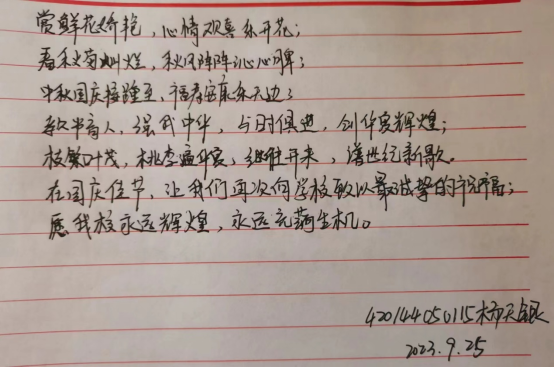 赏鲜花娇艳，心情观喜乐开花；
看秋菊灿烂，秋风阵阵沁心脾；
中秋国庆接踵至，福寿安康乐无边；
教书育人，强我中华，与时俱进，创华夏辉煌；
枝繁叶茂，桃李遍华夏，继往开来，谱世纪新歌。
在国庆佳节，让我们再次向学校致以最诚挚的祝福；
愿我校永远辉煌，永远充满生机。
420144050115柿天银
2023.9.25